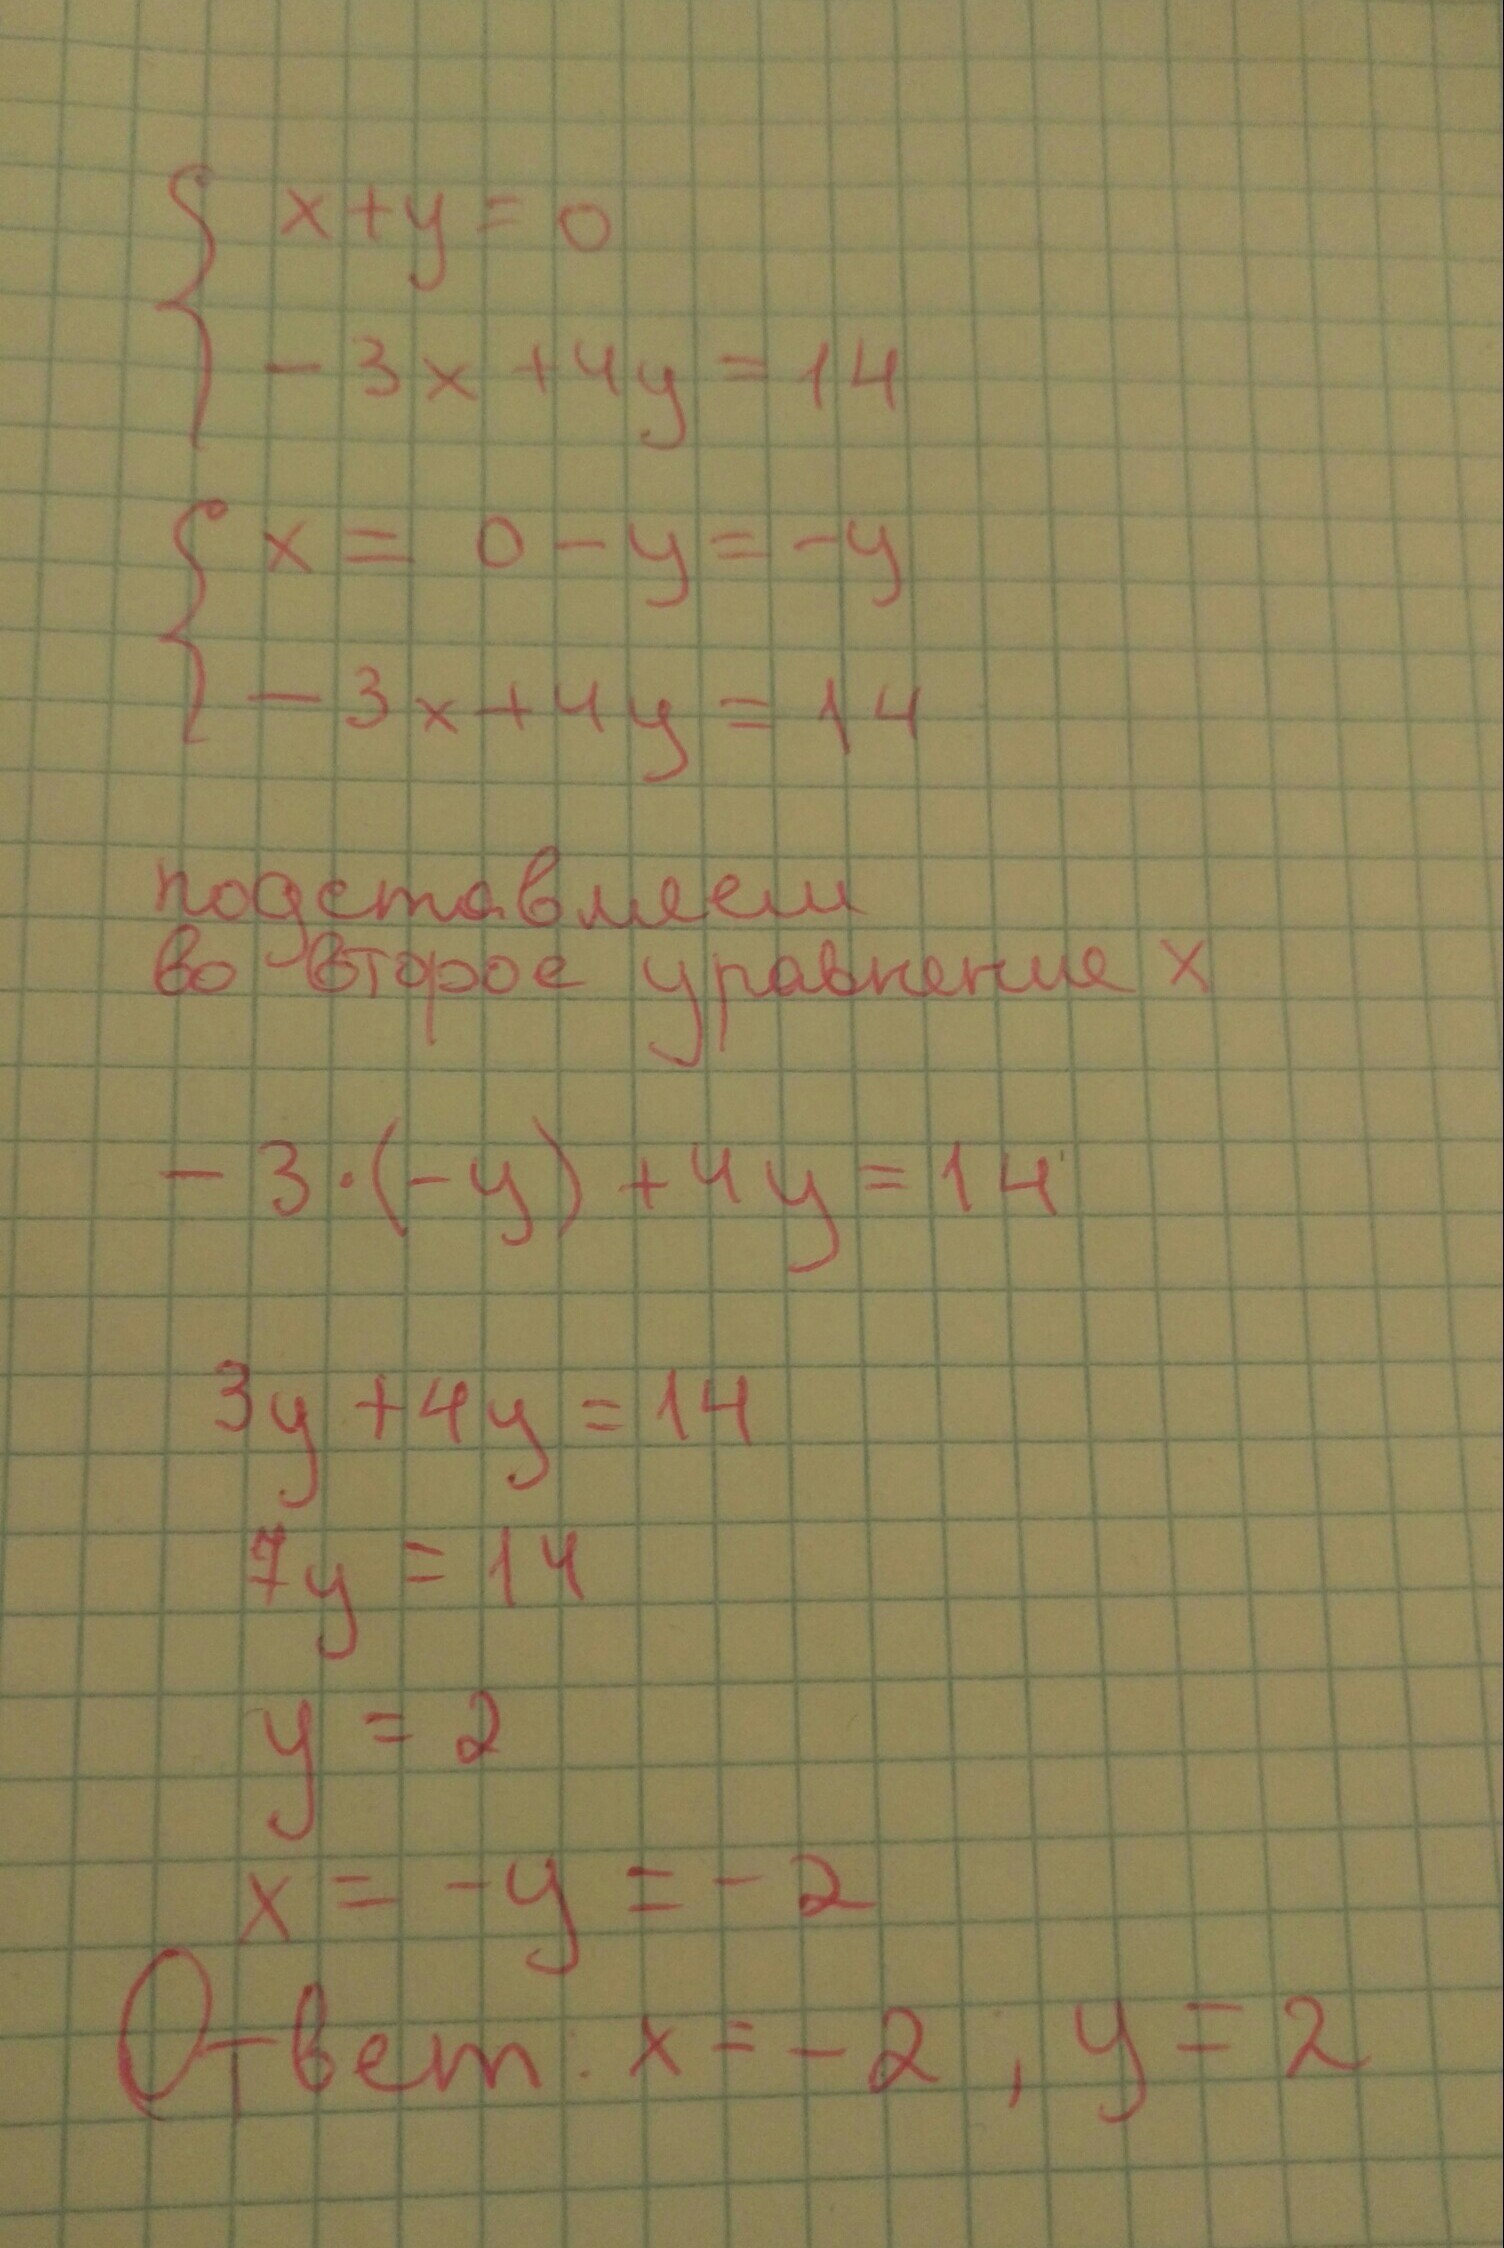 x+y=0
-3x+4y=14
x=0-y=-y
-3x+4y=14
подставляем
во второе уравнение x
-3·(-y)+4y=14
3y+4y=14
7y=14
y=2
x=-y=-2
Ответ: x=-2, y=2